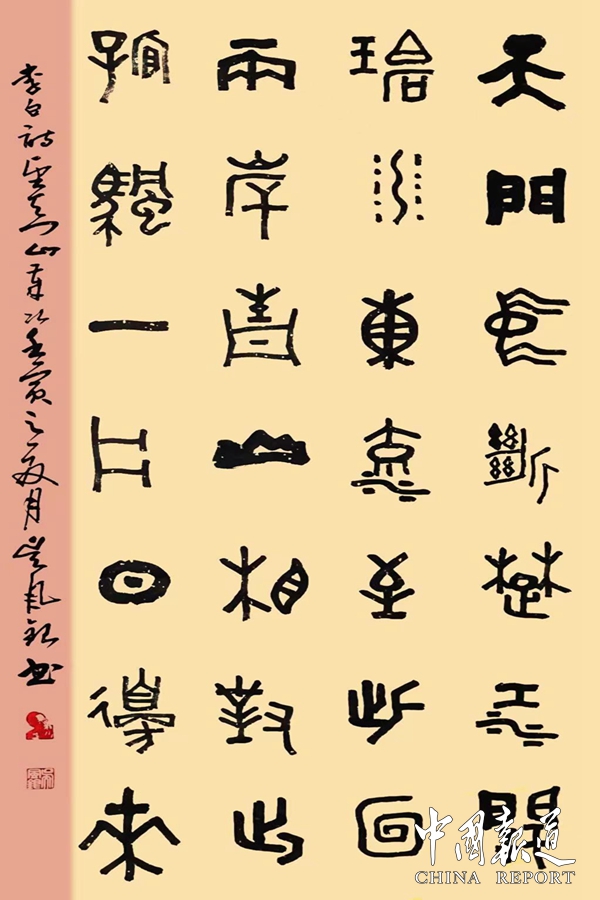 天門中斷楚江開
碧水東流至此回
兩岸青山相對出
孤帆一片日邊來
李白詩望天门山歲次壬寅之夏月書
中国報道
CHINA REPORT